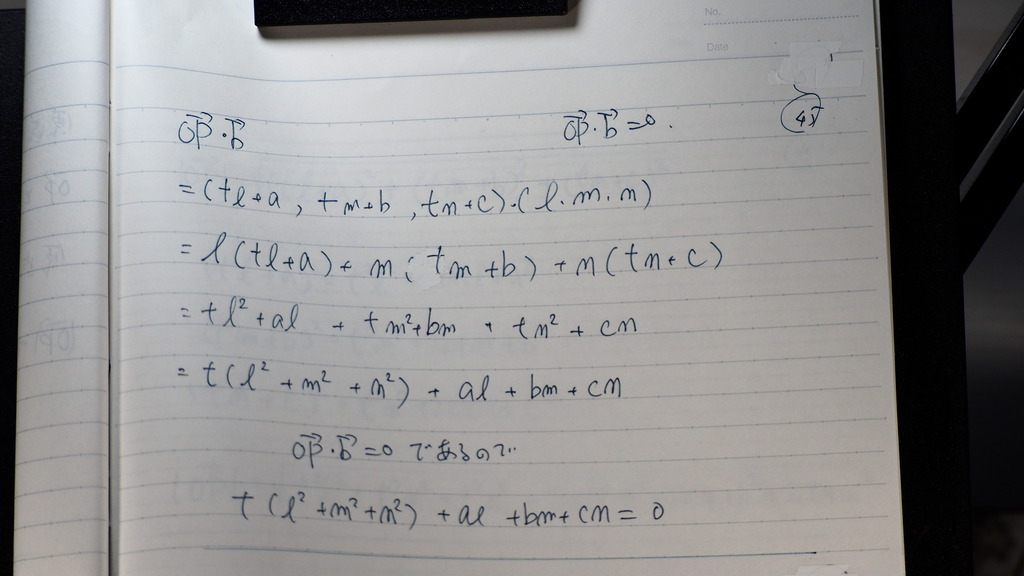 No.
Date
OP⃗・b⃗ OP⃗・b⃗=0.
=(tl+a, tm+b, tn+c)・(l.m.n)
=l(tl+a)+m(tm+b)+n(tn+c)
=tl²+al+tm²+bm+tn²+cn
=t(l²+m²+n²)+al+bm+cn
OP⃗・b⃗=0であるので
t(l²+m²+n²)+al+bm+cn=0